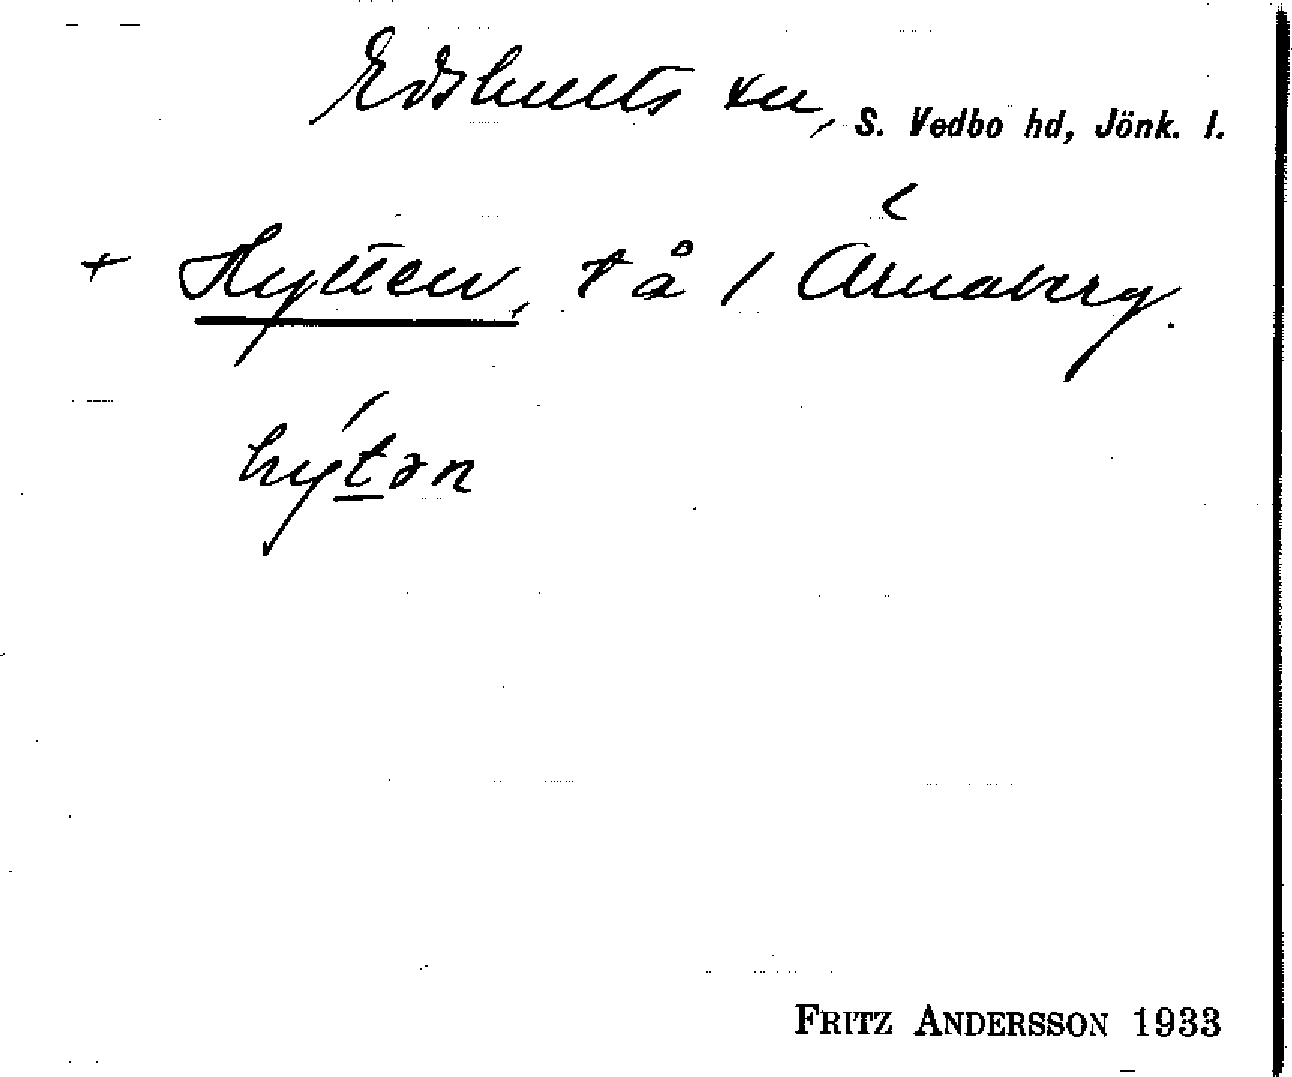 Edshults sn, S. Vedbo hd, Jönk. l.
+ Hytten, t å 1 Ärnaberg.
hýtən
FRITZ ANDERSSON 1933